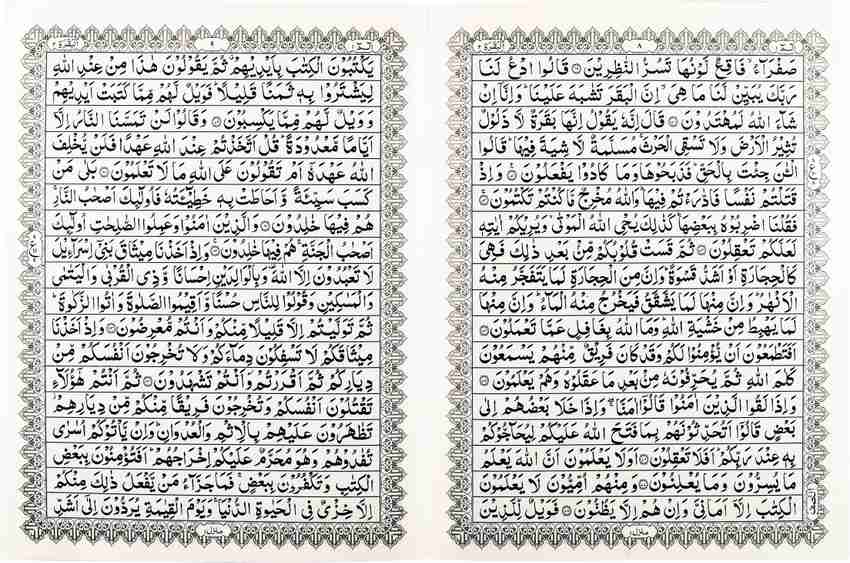 الٓمّٓ ١ ٨ البقرة ٢
صَفْرَآءُ ۙ فَاقِعٌ لَّوْنُهَا تَسُرُّ النّٰظِرِيْنَ ۝ قَالُوا ادْعُ لَنَا
رَبَّكَ يُبَيِّنْ لَّنَا مَا هِىَ ۙ اِنَّ الْبَقَرَ تَشٰبَهَ عَلَيْنَا ؕ وَاِنَّاۤ اِنْ
شَآءَ اللّٰهُ لَمُهْتَدُوْنَ ۝ قَالَ اِنَّهٗ يَقُوْلُ اِنَّهَا بَقَرَةٌ لَّا ذَلُوْلٌ
تُثِيْرُ الْاَرْضَ وَلَا تَسْقِى الْحَرْثَ ۚ مُسَلَّمَةٌ لَّا شِيَةَ فِيْهَا ؕ قَالُوا
الْـٰٔنَ جِئْتَ بِالْحَقِّ ؕ فَذَبَحُوْهَا وَمَا كَادُوْا يَفْعَلُوْنَ ۝ وَاِذْ
قَتَلْتُمْ نَفْسًا فَادّٰرَءْتُمْ فِيْهَا ؕ وَاللّٰهُ مُخْرِجٌ مَّا كُنْتُمْ تَكْتُمُوْنَ ۝
فَقُلْنَا اضْرِبُوْهُ بِبَعْضِهَا ؕ كَذٰلِكَ يُحْىِ اللّٰهُ الْمَوْتٰى ۙ وَيُرِيْكُمْ اٰيٰتِهٖ
لَعَلَّكُمْ تَعْقِلُوْنَ ۝ ثُمَّ قَسَتْ قُلُوْبُكُمْ مِّنْۢ بَعْدِ ذٰلِكَ فَهِىَ
كَالْحِجَارَةِ اَوْ اَشَدُّ قَسْوَةً ؕ وَاِنَّ مِنَ الْحِجَارَةِ لَمَا يَتَفَجَّرُ مِنْهُ
الْاَنْهٰرُ ؕ وَاِنَّ مِنْهَا لَمَا يَشَّقَّقُ فَيَخْرُجُ مِنْهُ الْمَآءُ ؕ وَاِنَّ مِنْهَا
لَمَا يَهْبِطُ مِنْ خَشْيَةِ اللّٰهِ ؕ وَمَا اللّٰهُ بِغَافِلٍ عَمَّا تَعْمَلُوْنَ ۝
اَفَتَطْمَعُوْنَ اَنْ يُّؤْمِنُوْا لَكُمْ وَقَدْ كَانَ فَرِيْقٌ مِّنْهُمْ يَسْمَعُوْنَ
كَلٰمَ اللّٰهِ ثُمَّ يُحَرِّفُوْنَهٗ مِنْۢ بَعْدِ مَا عَقَلُوْهُ وَهُمْ يَعْلَمُوْنَ ۝
وَاِذَا لَقُوا الَّذِيْنَ اٰمَنُوْا قَالُوْۤا اٰمَنَّا ۚۖ وَاِذَا خَلَا بَعْضُهُمْ اِلٰى
بَعْضٍ قَالُوْۤا اَتُحَدِّثُوْنَهُمْ بِمَا فَتَحَ اللّٰهُ عَلَيْكُمْ لِيُحَآجُّوْكُمْ
بِهٖ عِنْدَ رَبِّكُمْ ؕ اَفَلَا تَعْقِلُوْنَ ۝ اَوَلَا يَعْلَمُوْنَ اَنَّ اللّٰهَ يَعْلَمُ
مَا يُسِرُّوْنَ وَمَا يُعْلِنُوْنَ ۝ وَمِنْهُمْ اُمِّيُّوْنَ لَا يَعْلَمُوْنَ
الْكِتٰبَ اِلَّاۤ اَمَانِىَّ وَاِنْ هُمْ اِلَّا يَظُنُّوْنَ ۝ فَوَيْلٌ لِّلَّذِيْنَ
الٓمّٓ ١ ٩ البقرة ٢
يَكْتُبُوْنَ الْكِتٰبَ بِاَيْدِيْهِمْ ۗ ثُمَّ يَقُوْلُوْنَ هٰذَا مِنْ عِنْدِ اللّٰهِ
لِيَشْتَرُوْا بِهٖ ثَمَنًا قَلِيْلًا ؕ فَوَيْلٌ لَّهُمْ مِّمَّا كَتَبَتْ اَيْدِيْهِمْ
وَ وَيْلٌ لَّهُمْ مِّمَّا يَكْسِبُوْنَ ۝ وَقَالُوْا لَنْ تَمَسَّنَا النَّارُ اِلَّاۤ
اَيَّامًا مَّعْدُوْدَةً ؕ قُلْ اَتَّخَذْتُمْ عِنْدَ اللّٰهِ عَهْدًا فَلَنْ يُّخْلِفَ
اللّٰهُ عَهْدَهٗۤ اَمْ تَقُوْلُوْنَ عَلَى اللّٰهِ مَا لَا تَعْلَمُوْنَ ۝ بَلٰى مَنْ
كَسَبَ سَيِّئَةً وَّاَحَاطَتْ بِهٖ خَطِيْٓئَتُهٗ فَاُولٰٓئِكَ اَصْحٰبُ النَّارِ ۚ
هُمْ فِيْهَا خٰلِدُوْنَ ۝ وَالَّذِيْنَ اٰمَنُوْا وَعَمِلُوا الصّٰلِحٰتِ اُولٰٓئِكَ
اَصْحٰبُ الْجَنَّةِ ۚ هُمْ فِيْهَا خٰلِدُوْنَ ۝ وَاِذْ اَخَذْنَا مِيْثَاقَ بَنِىْۤ اِسْرَآءِيْلَ
لَا تَعْبُدُوْنَ اِلَّا اللّٰهَ ۗ وَبِالْوَالِدَيْنِ اِحْسَانًا وَّذِى الْقُرْبٰى وَالْيَتٰمٰى
وَالْمَسٰكِيْنِ وَقُوْلُوْا لِلنَّاسِ حُسْنًا وَّاَقِيْمُوا الصَّلٰوةَ وَاٰتُوا الزَّكٰوةَ ؕ
ثُمَّ تَوَلَّيْتُمْ اِلَّا قَلِيْلًا مِّنْكُمْ وَاَنْتُمْ مُّعْرِضُوْنَ ۝ وَاِذْ اَخَذْنَا
مِيْثَاقَكُمْ لَا تَسْفِكُوْنَ دِمَآءَكُمْ وَلَا تُخْرِجُوْنَ اَنْفُسَكُمْ مِّنْ
دِيَارِكُمْ ثُمَّ اَقْرَرْتُمْ وَاَنْتُمْ تَشْهَدُوْنَ ۝ ثُمَّ اَنْتُمْ هٰٓؤُلَآءِ
تَقْتُلُوْنَ اَنْفُسَكُمْ وَتُخْرِجُوْنَ فَرِيْقًا مِّنْكُمْ مِّنْ دِيَارِهِمْ ۚ
تَظٰهَرُوْنَ عَلَيْهِمْ بِالْاِثْمِ وَالْعُدْوَانِ ؕ وَاِنْ يَّاْتُوْكُمْ اُسٰرٰى
تُفٰدُوْهُمْ وَهُوَ مُحَرَّمٌ عَلَيْكُمْ اِخْرَاجُهُمْ ؕ اَفَتُؤْمِنُوْنَ بِبَعْضِ
الْكِتٰبِ وَتَكْفُرُوْنَ بِبَعْضٍ ۚ فَمَا جَزَآءُ مَنْ يَّفْعَلُ ذٰلِكَ مِنْكُمْ
اِلَّا خِزْىٌ فِى الْحَيٰوةِ الدُّنْيَا ۚ وَيَوْمَ الْقِيٰمَةِ يُرَدُّوْنَ اِلٰٓى اَشَدِّ